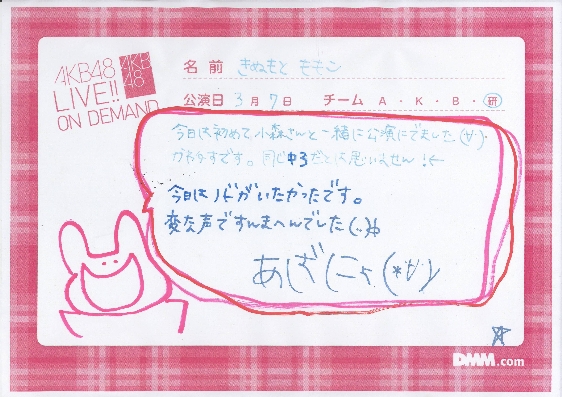 AKB48
LIVE!!
ON DEMAND
AKB
48
名前 きぬもと ももこ
公演日 3月7日 チーム A・K・B・研
今日は初めて小森さんと一緒に公演にでました(∀)
かわいすぎです。同じ中3だとは思いません!←
今日はノドがいたかったです。
変な声ですんまへんでした(..)
あざ
DMM.com